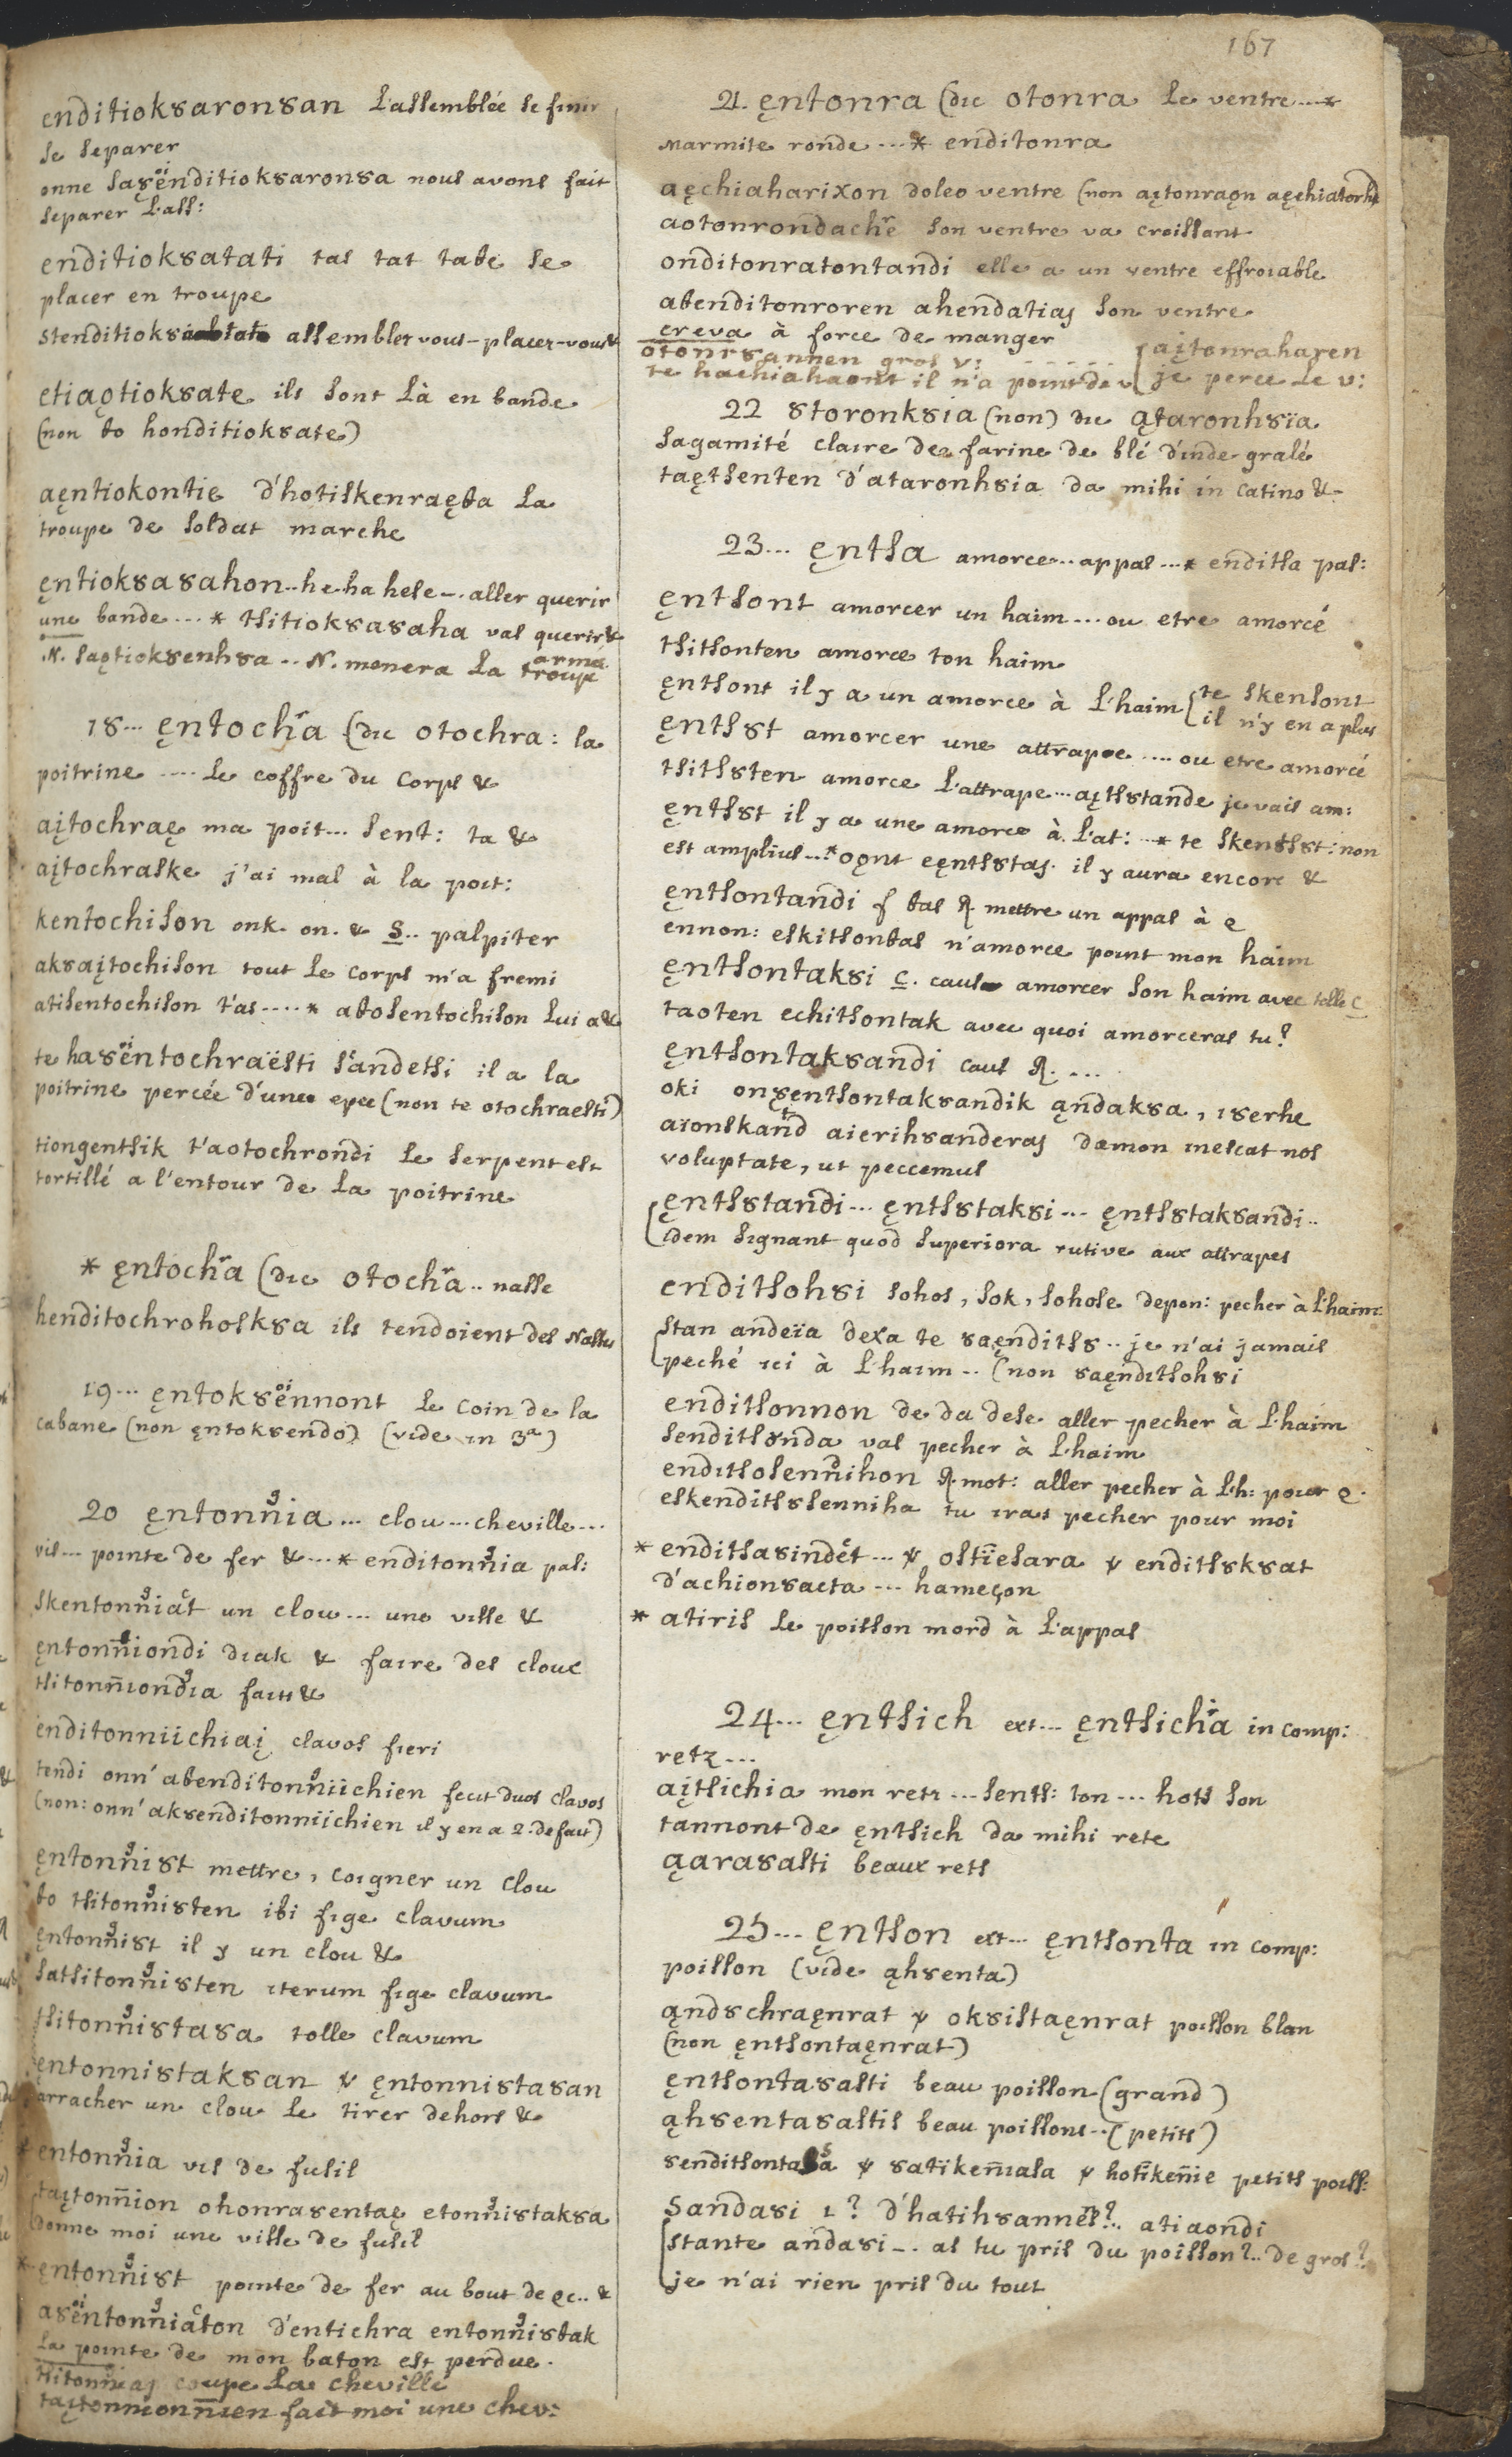 167
enditiokȣaronȣan l'assemblée se finir
se separer
onne saȣenditiokȣaronȣa nous avons fait
separer l'ass:
enditiokȣatati tas tat taθe se
placer en troupe
assemblez vous - placez-vous &
etiaotiokȣate ils sont là en bande
(non θo honditiokȣate)
aęntiokontie d'hotiskenraęθa la
troupe de soldat marche
ęntiokȣaȣahon.. he ha hese -. aller querir
une bande ... * tsitiokȣaȣaha vas querir &
.N. saotiokȣenhȣa .. N. menera la troupe
armà
18... ęntochra (dic otochra: la
poitrine .... le coffre du corps &
aįtochraę ma poit... sent: ta &
aįtochraske j'ai mal à la poit:
kentochison onk. on. & S.. palpiter
akȣaįtochison tout le corps m'a fremi
atisentochison t'as .... * aθosentochison lui a &
te haȣentochraësti s'andetsi il a la
poitrine percée d'une epée (non te otochraesti)
tiongentsik t'aotochrondi le serpent est
tortillé a l'entour de la poitrine
* ęntochra (dic otochra .. nasse
henditochroholkȣa ils tendoient des Nasses
19... ęntokȣennont le coin de la
cabane (non ęntokȣendo) (vide in 3ª)
20 ęntonnia ... clou ... cheville ...
vis ... pointe de fer & ... * enditonnia pal:
skentonniat un clou ... une visse &
ęntonniondi diak & faire des cloux
tsitonniondia fais &
enditonniichiaį clavos fieri
tendi onn' aθenditonniichien fecit duos clavos
(non: onn' akȣenditonniichien il y en a 2. de fait)
ęntonniȣt mettre, coigner un clou
θo tsitonniȣten ibi fige clavum
ęntonniȣt il y un clou &
satsitonniȣten iterum fige clavum
tsitonniȣtaȣa tolle clavum
ęntonniȣtakȣan ѱ ęntonniȣtaȣan
arracher un clou le tirer dehors &
* entonnia vis de fusil
taįtonnion ohonraȣentaę etonniȣtakȣa
donne moi une visse de fusil
* ęntonniȣt pointe de fer au bout de qc.. &
aȣentonniaton d'entichra entonniȣθak
la pointe de mon baton est perdue.
tsitonniaį coupe la cheville
taįtonnionnien fait moi une chev:
21. ęntonra (dic otonra le ventre ...*
marmite ronde ... * enditonra
aęchiaharixon doleo ventre (non aįtonraǫn
aotonrondachre son ventre va croissant
onditonratontandi elle a un ventre effroiable
aθenditonroren ahendatiaį son ventre
creva à force de manger
otonrȣannen gros v: .....
te hachiahaont il n'a point de v
aįtonraharen
je perce le v:
22 ȣtoronkȣia (non) dic ątaronhȣia
sagamité claire de farine de blé d'inde gralé
taętsenten d'ataronhȣia da mihi in catino &
23... ęntsa amorce .. appas ... * enditsa pal:
ęntsont amorcer un haim ... ou etre amorcé
tsitsonten amorce ton haim
ęntsont il y a un amorce à l'haim
te skensont
il n'y en a plus
ęntsȣt amorcer une attrape .... ou etre amorcé
tsitsȣten amorce l'attrape ... aįtsȣtande je vais am:
ęntsȣt il y a une amorce à l'at: ... * te skentsȣt: non
est amplius ... * oǫnt eęntsȣtaį. il y aura encore &
ęntsontandi f θas R. mettre un appas à q
ennon: eskitsonθas n'amorce point mon haim
ęntsontakȣi C. causa amorcer son haim avec telle c
taoten echitsontak avec quoi amorceras tu?
ęntsontakȣandi caus R. ...
oki onȣentsontakȣandik ąndakȣa, iserhe
aionskand aierihȣanderaį dæmon inescat nos
voluptate, ut peccemus
ęntsȣtandi ... ęntsȣtakȣi ... ęntsȣtakȣandi ..
idem signant quod superiora rutive aux attrapes
enditsohȣi sohos, sok, sohose depon: pecher à l'haim
stan andeïa dexa te ȣaęnditsȣ .. je n'ai jamais
peché ici à l'haim .. (non ȣaęnditsohȣi
enditsonnon de da dese aller pecher à l'haim
senditsonda vas pecher à l'haim
enditsosennihon R. mot: aller pecher à l'h: pour q.
eskenditsȣsenniha tu iras pecher pour moi
* enditsaȣindet ... ѱ ostiesara ѱ enditsȣkȣat
d'achionȣacta ... hameçon
* atiris le poisson mord à l'appas
24... ęntsich ext ... ęntsichra in comp:
retz ...
aįtsichia mon rets ... sents: ton ... hots son
tannont de ęntsich da mihi rete
ąaraȣasti beaux rets
25... ęntson ext ... ęntsonta in comp:
poisson (vide ąhȣenta)
ąndȣchraęnrat ѱ okȣistaęnrat poisson blan
(non ęntsontaęnrat)
ęntsontaȣasti beau poisson (grand)
ąhȣentaȣastis beau poissons .. (petits)
ѱ ȣatikeniasa ѱ hotikenie petits poiss:
Sandaȣi 1? d'hatihȣannens?.. atiaondi
stante andaȣi -. as tu pris du poisson?.. de gros?
je n'ai rien pris du tout